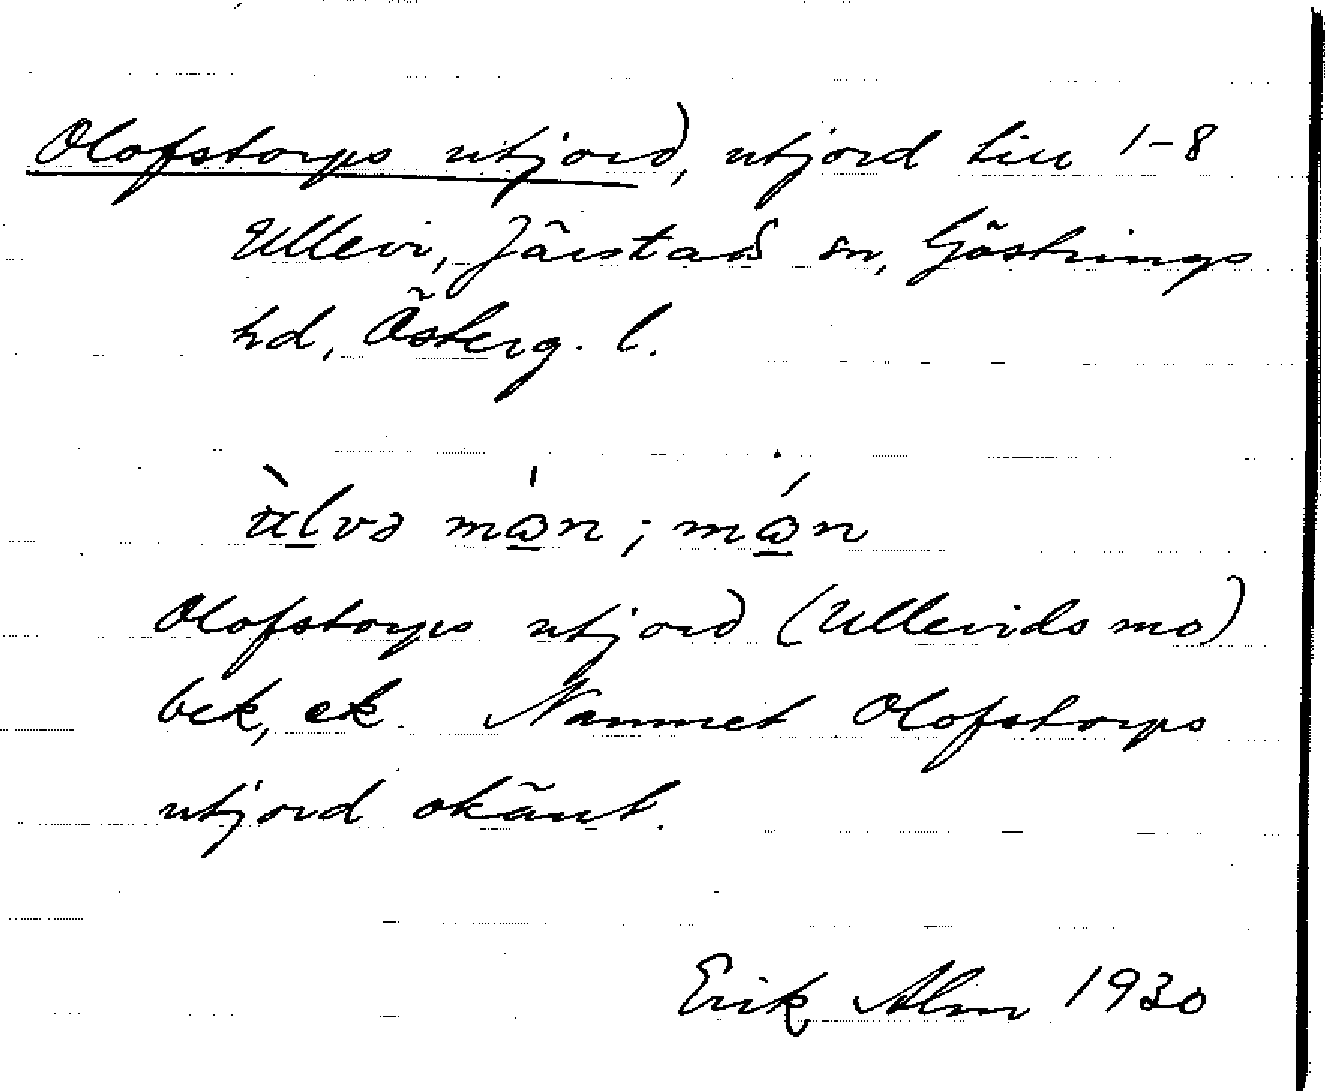 Olofstorps utjord, utjord till 1-8
Ullevi, Järstad sn, Göstrings
hd, Österg. l.
ùlvə mɷ̀n; mɷ́n
Olofstorps utjord (Ullevids mo)
bek, ek. Namnet Olofstorps
utjord okänt.
Erik Alm 1930